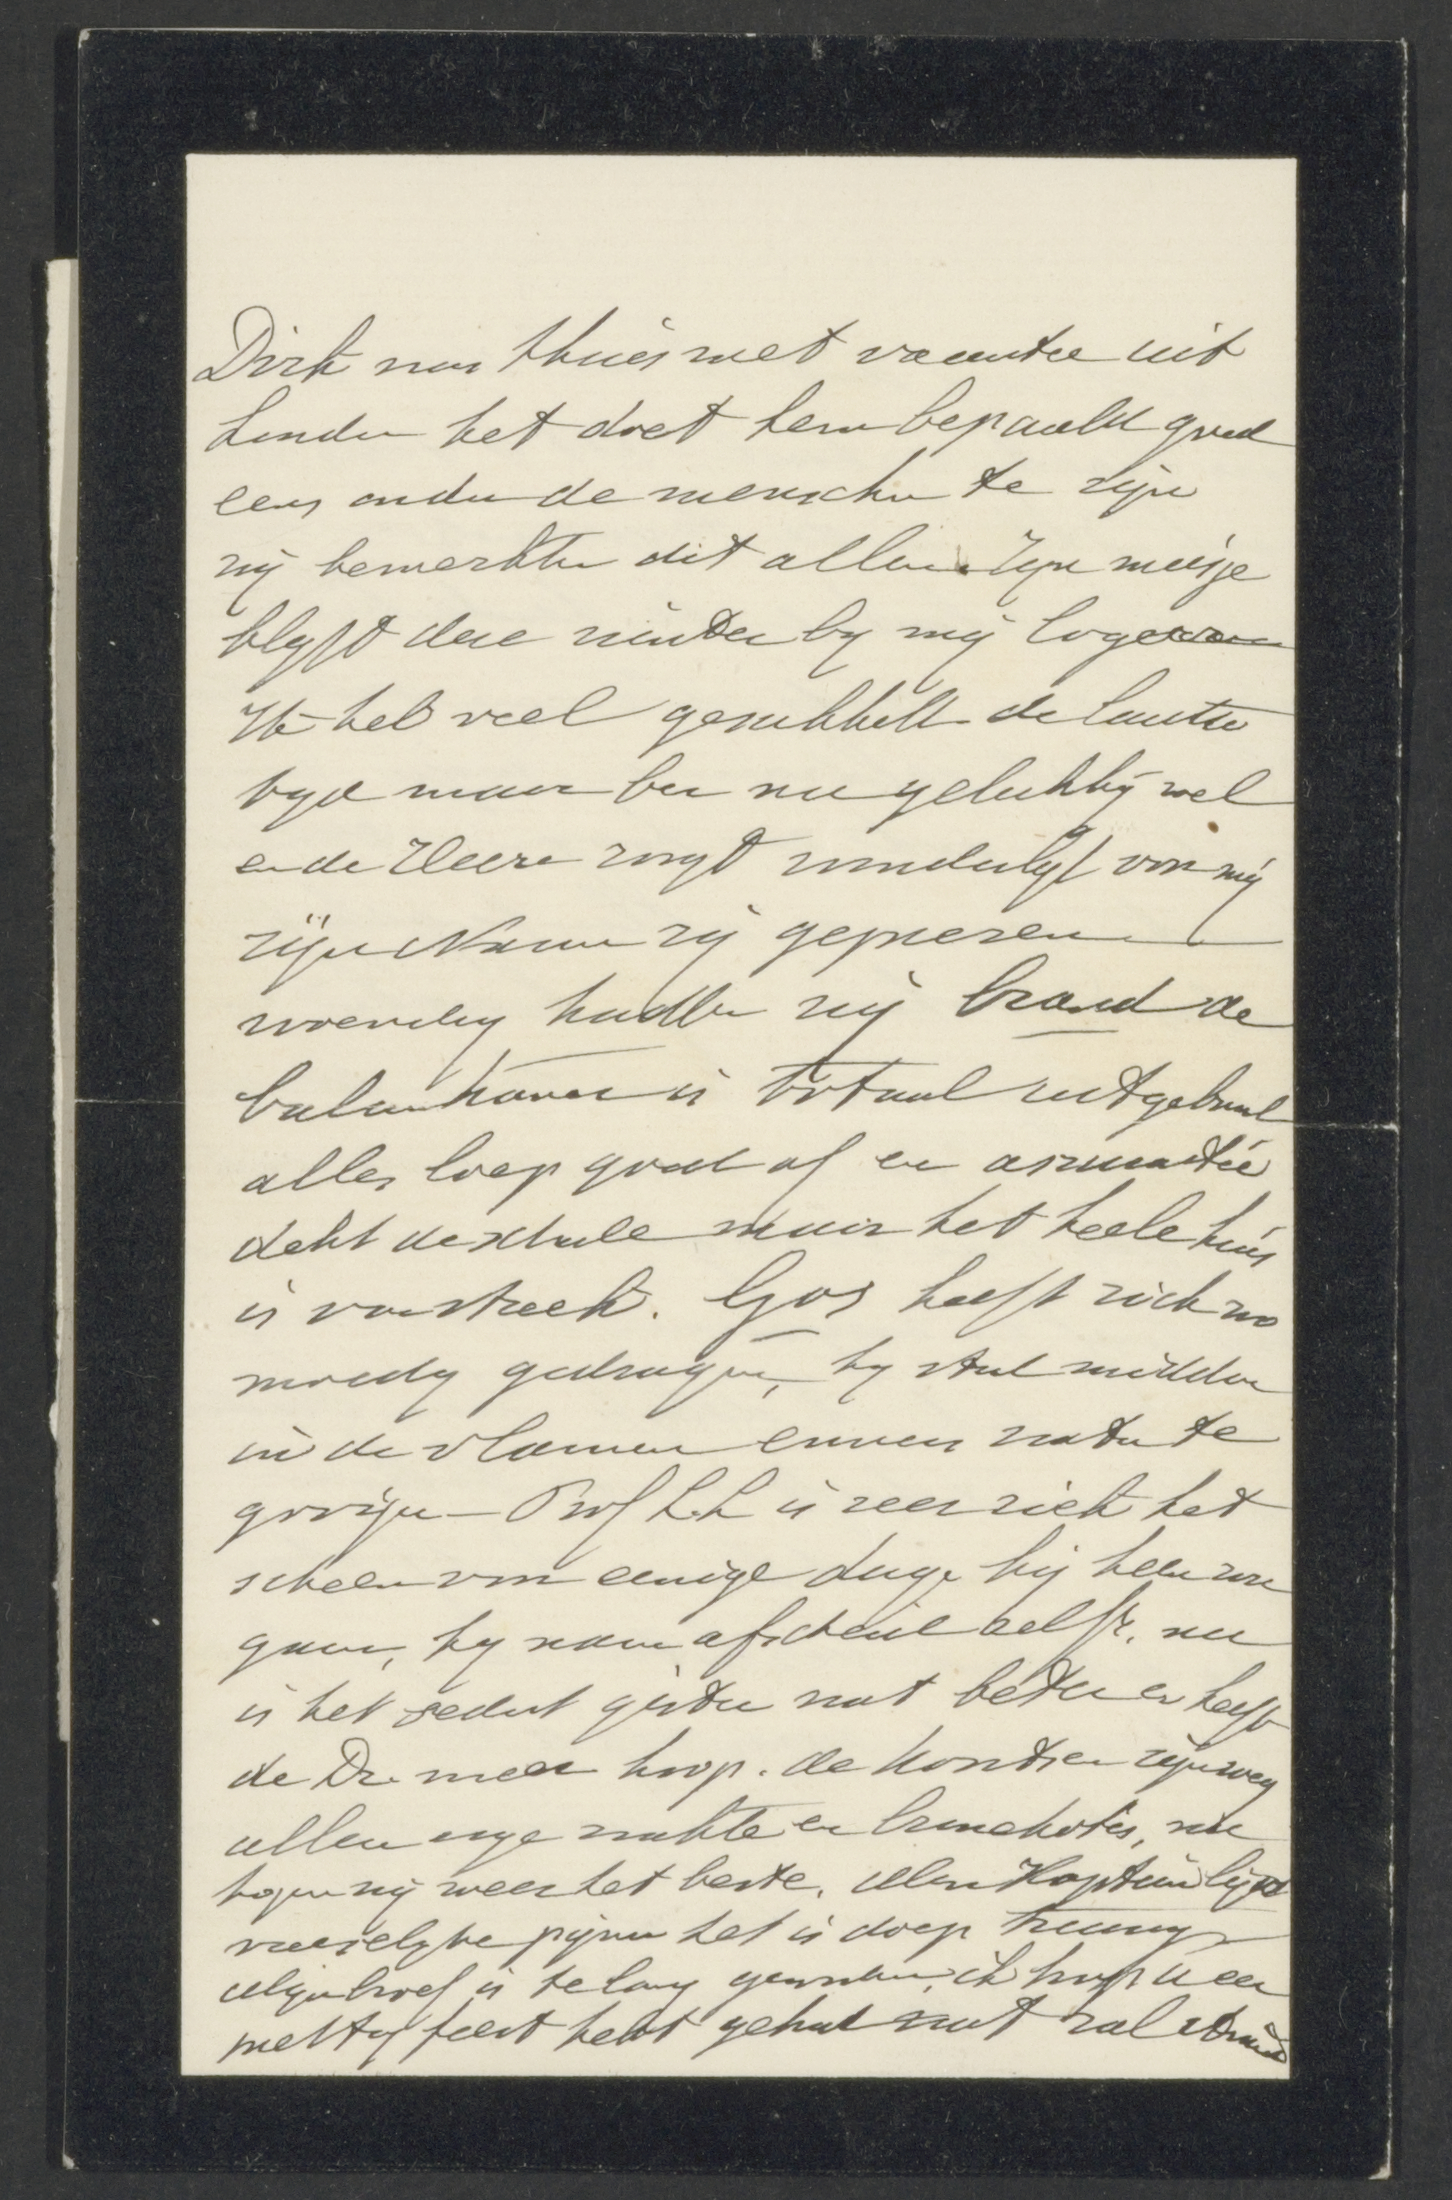 Dirk was thuis met vacantie uit
Londen het doet hem bepaald goed
eens onder de menschen te zijn
wij bemerkten dit allen. Zijn meisje
blyft deze winter by mij logeeren
Ik heb veel gesukkelt de laatste
tyd maar ben nu gelukkig wel
en de Heere zorgt wonderlyk voor mij
zijn Naam zij geprezen
woensdag hadden wij brand de
balan kamer is totaal uitgebrand
alles loop goed af en assurantie
dekt de schade maar het heele huis
is van streek. Gos heeft zich zoo
moedig gedragen, hy stond midden
in de vlamen emmers water te
gooijen – Prof L.L is zeer ziek het
scheen voor eenige dage hij heen zou
gaan, hy nam afscheid zelfs. nu
is het sedert gister wat beter en heeft
de Dr. meer hoop. de koortsen zijn weg
allen nge zwakte en bronchotis, nu
hopen wij weer het beste. Mevr Kapteun lijdt
vreeselyke pijnen het is doep treurig
Mijn brief is te lang geworden, ik hoop U een
prettig feest hebt gehad wat zal